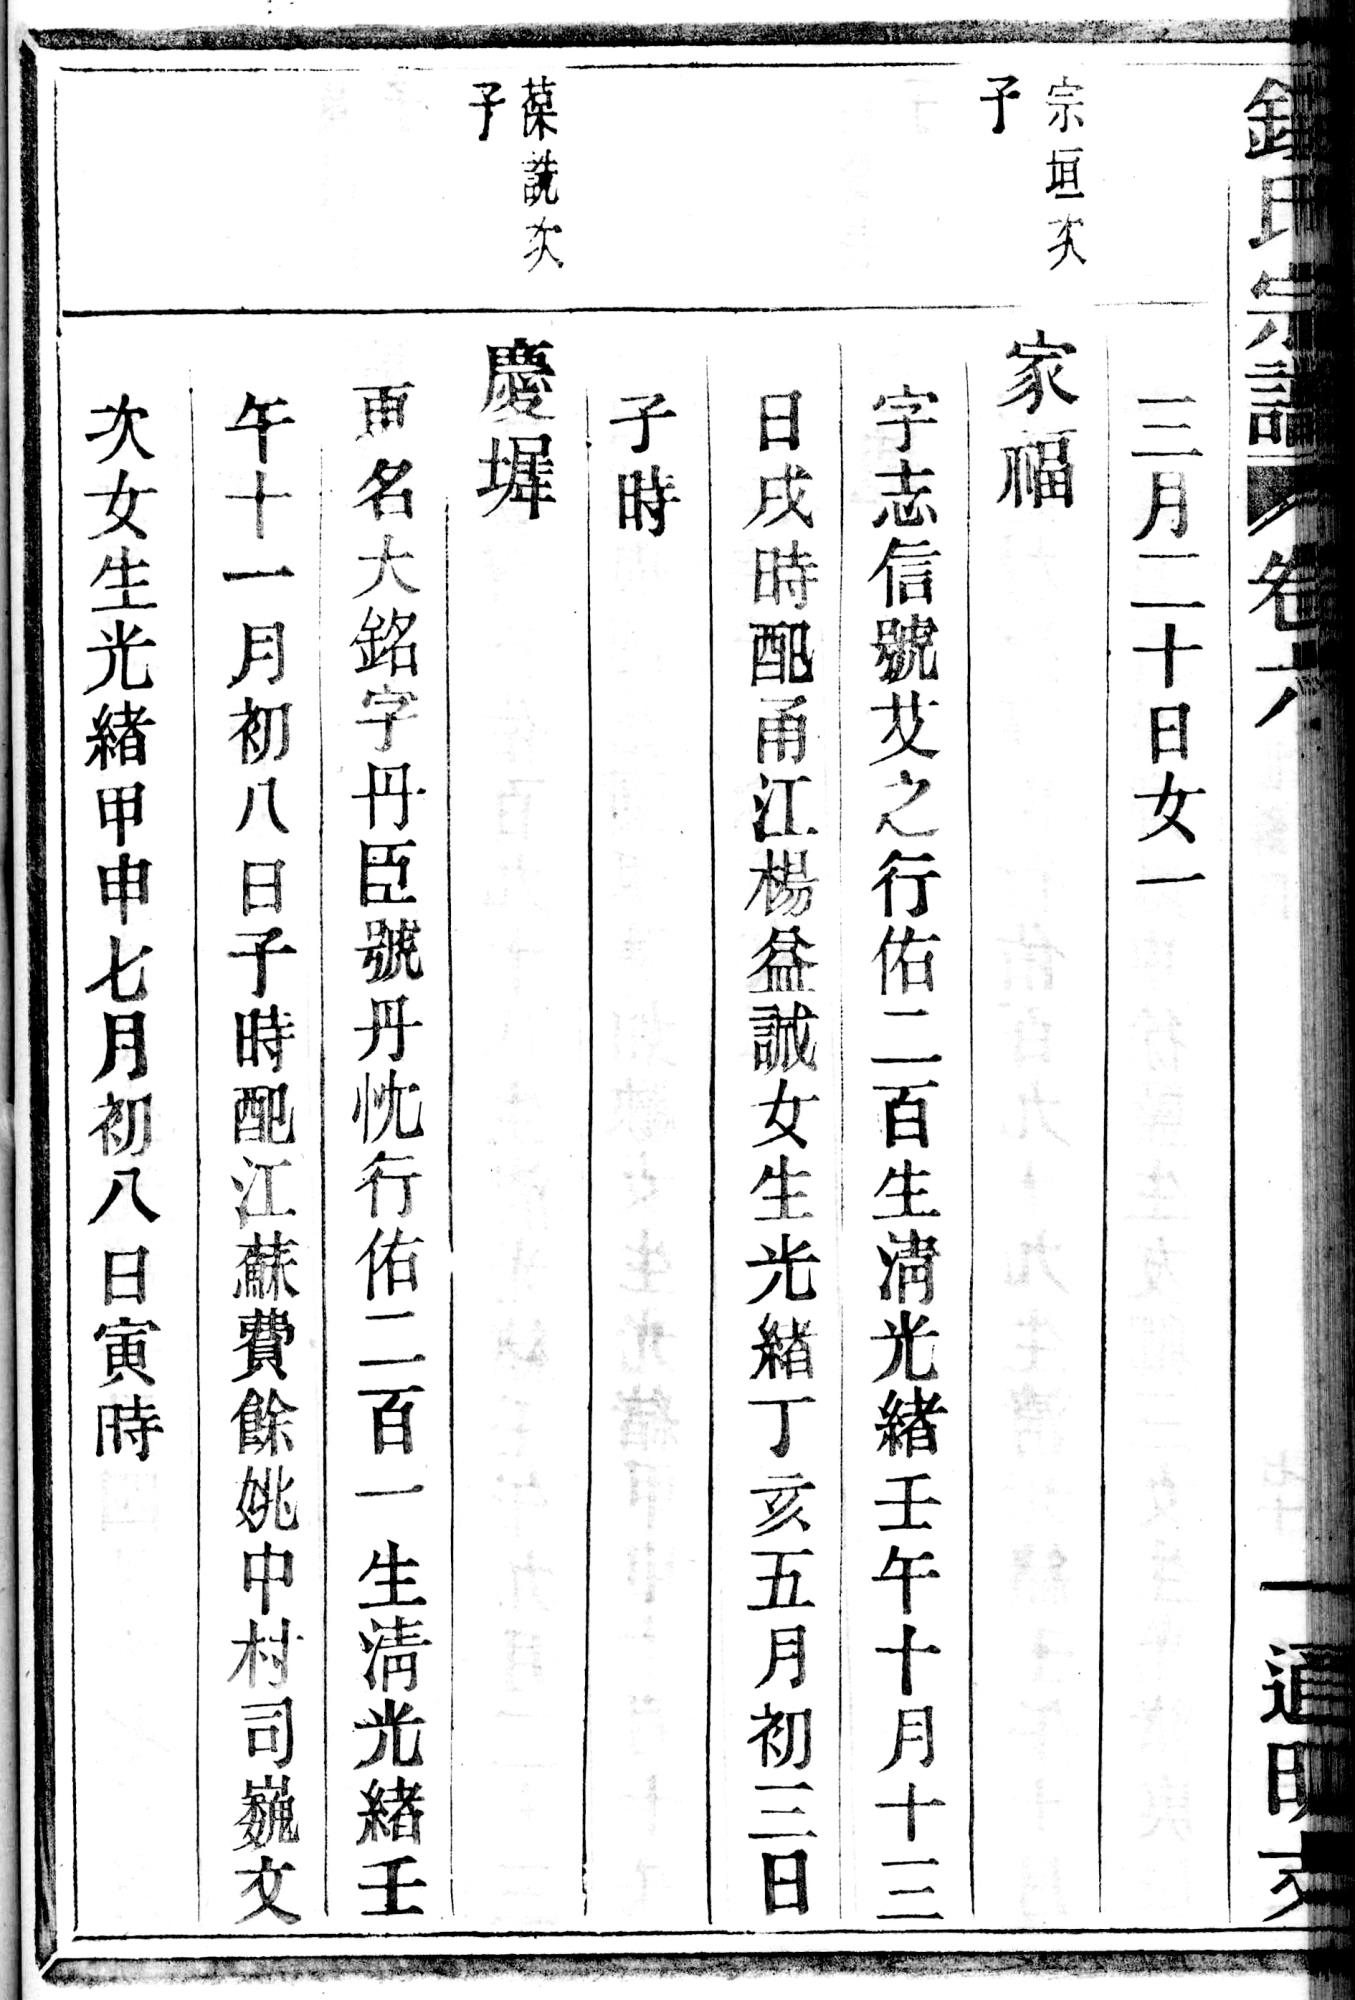 鍾氏宗譜 卷六 一 道明支
三月二十日女一
宗垣次
子
家福
字志信號艾之行佑二百生清光緒壬午十月十三
日戌時配甬江楊益誠女生光緒丁亥五月初三日
子時
葆詵次
子
慶墀
更名大銘字丹臣號丹忱行佑二百一生清光緒壬
午十一月初八日子時配江蘇費餘姚中村司巍文
次女生光緒甲申七月初八日寅時